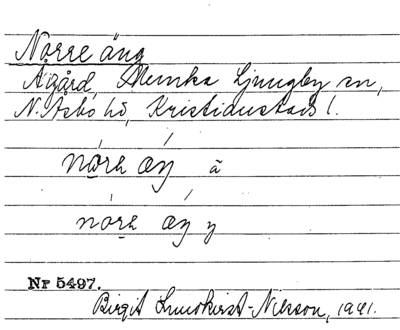 Norre äng
Ägård, Munka Ljungby sn,
N. Åsbo hd, Kristianstads l.
nårə æŋ ã
nårə æŋ y
Nr 5497.
Birgit Lundkvist-Nilsson, 1941.